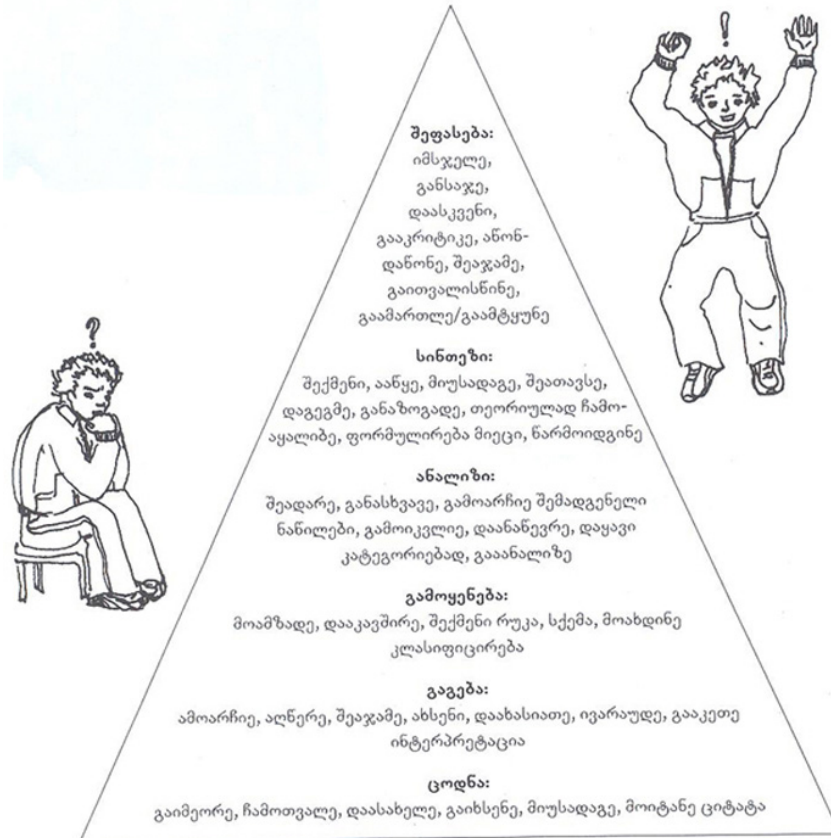 !
შეფასება:
იმსჯელე,
განსაჯე,
დაასკვენი,
გააკრიტიკე, აწონ-
დაწონე, შეაჯამე,
გაითვალისწინე,
გაამართლე/გაამტყუნე
?
სინთეზი:
შექმენი, ააწყე, მიუსადაგე, შეათავსე,
დაგეგმე, განაზოგადე, თეორიულად ჩამო-
აყალიბე, ფორმულირება მიეცი, წარმოიდგინე
ანალიზი:
შეადარე, განასხვავე, გამოარჩიე შემადგენელი
ნაწილები, გამოიკვლიე, დაანაწევრე, დაყავი
კატეგორიებად, გააანალიზე
გამოყენება:
მოამზადე, დააკავშირე, შექმენი რუკა, სქემა, მოახდინე
კლასიფიცირება
გაგება:
ამოარჩიე, აღწერე, შეაჯამე, ახსენი, დაახასიათე, ივარაუდე, გააკეთე
ინტერპრეტაცია
ცოდნა:
გაიმეორე, ჩამოთვალე, დაასახელე, გაიხსენე, მიუსადაგე, მოიტანე ციტატა